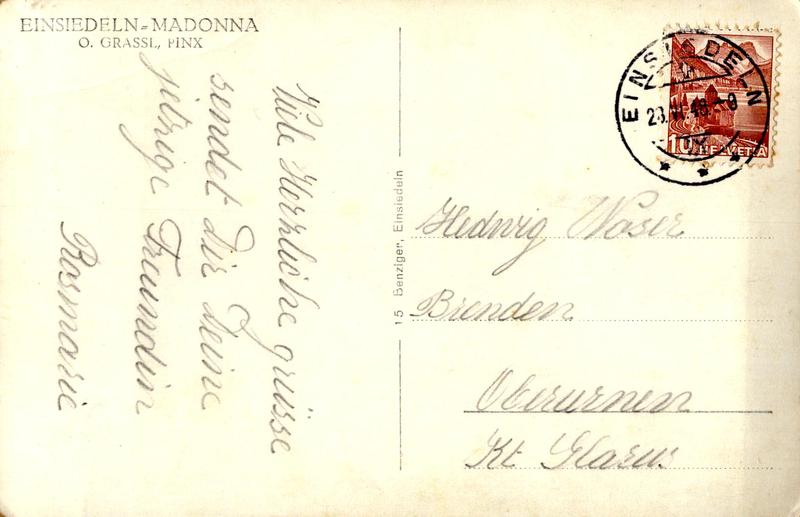 EINSIEDELN-MADONNA
O. GRASSL, PINX
Viele Herzliche grüsse
sendet Dir Deine
jetzige Freundin
Rosmarie
15 Benziger, Einsiedeln
EINSIEDELN
10 HELVETIA
Hedwig Noser
Brenden
Oberurnen
Kt Glarus